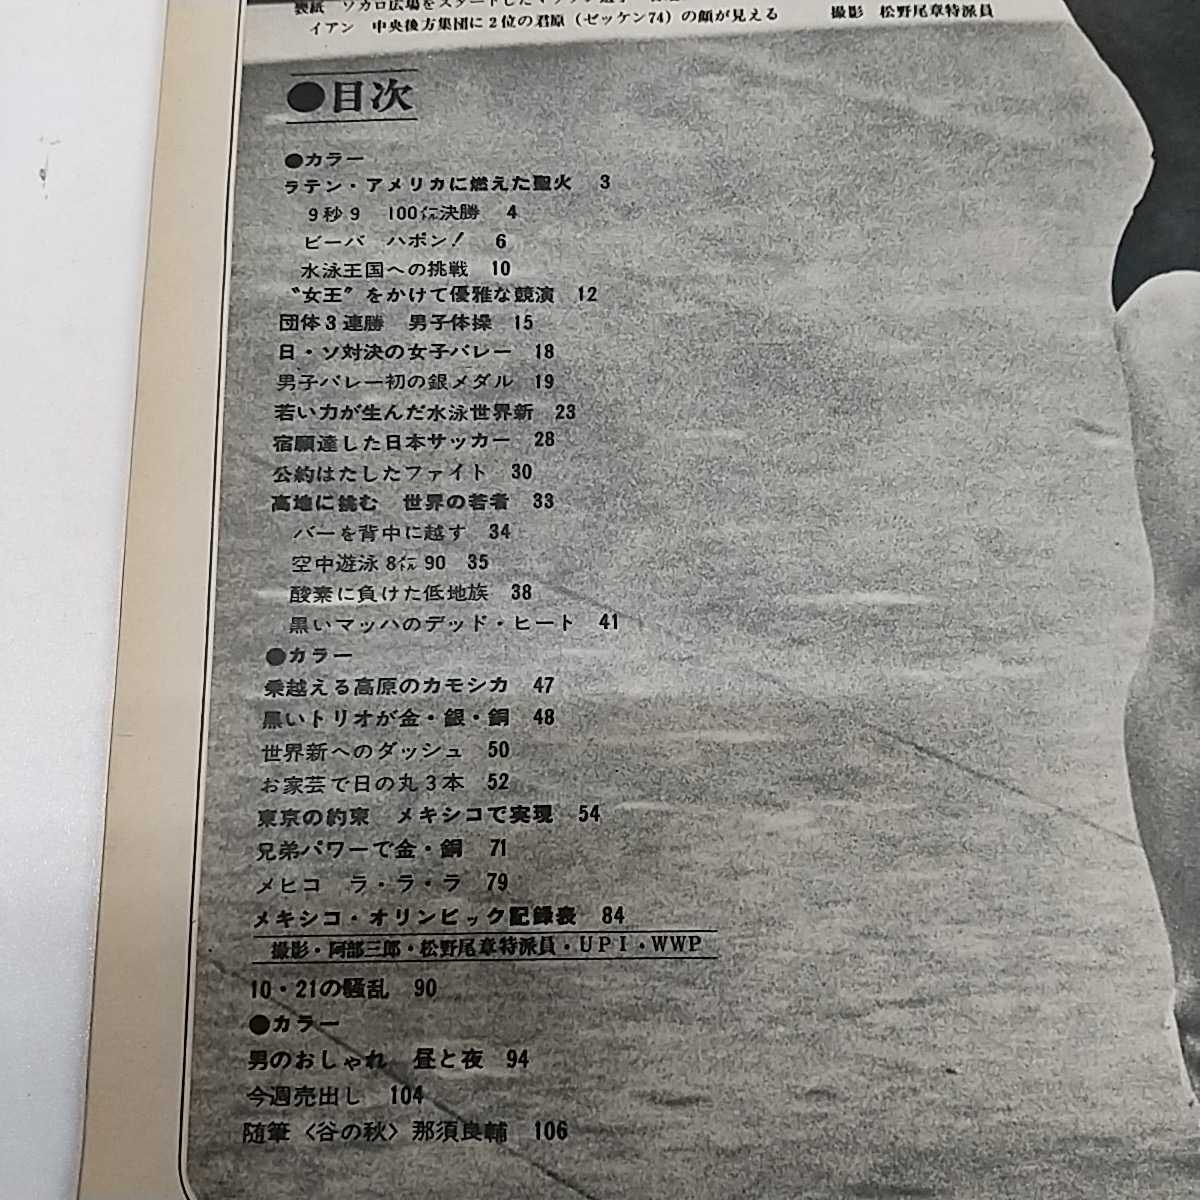 表紙 ソカロ広場をスタートした
イアン 中央後方集団に2位の君原(ゼッケン74)の顔が見える 撮影 松野尾章特派員
●目次
●カラー
ラテン・アメリカに燃えた聖火 3
9秒9 100㍍決勝 4
ビーバ ハポン! 6
水泳王国への挑戦 10
〝女王〟をかけて優雅な競演 12
団体3連勝 男子体操 15
日・ソ対決の女子バレー 18
男子バレー初の銀メダル 19
若い力が生んだ水泳世界新 23
宿願達した日本サッカー 28
公約はたしたファイト 30
高地に挑む 世界の若者 33
バーを背中に越す 34
空中遊泳8㍍90 35
酸素に負けた低地族 38
黒いマッハのデッド・ヒート 41
●カラー
乗越える高原のカモシカ 47
黒いトリオが金・銀・銅 48
世界新へのダッシュ 50
お家芸で日の丸3本 52
東京の約束 メキシコで実現 54
兄弟パワーで金・銅 71
メヒコ ラ・ラ・ラ 79
メキシコ・オリンピック記録表 84
撮影・阿部三郎・松野尾章特派員・UPI・WWP
10・21の騒乱 90
●カラー
男のおしゃれ 昼と夜 94
今週売出し 104
随筆〈谷の秋〉那須良輔 106